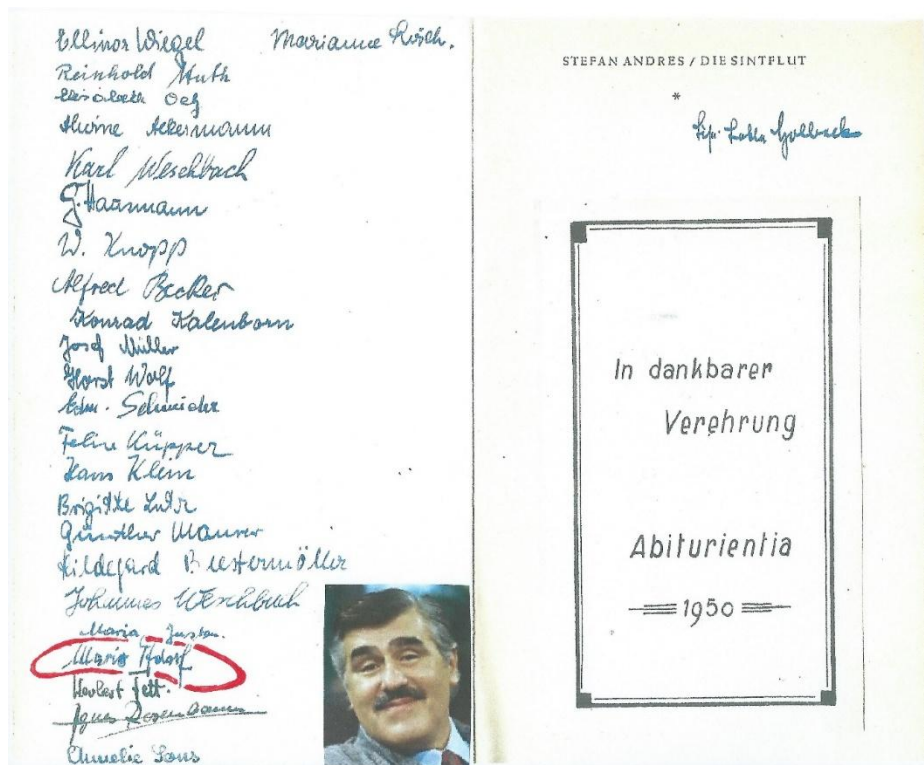 Ellinor Wiegel Marianne
Reinhold Huth
Elisabeth
Ackermann
Karl Weschbach
G. Haarmann
W. Knopp
Alfred Becker
Konrad Kalenborn
Josef Müller
Horst Wolf
Edm. Schneider
Küpper
Hans Klein
Brigitte
Günther Maurer
Hildegard Biestermöller
Johannes Weschbach
Maria
Mario Adorf
Herbert Fett.
Agnes Rosenbaum
Annelie
STEFAN ANDRES / DIE SINTFLUT
*
In dankbarer
Verehrung
Abiturientia
1950